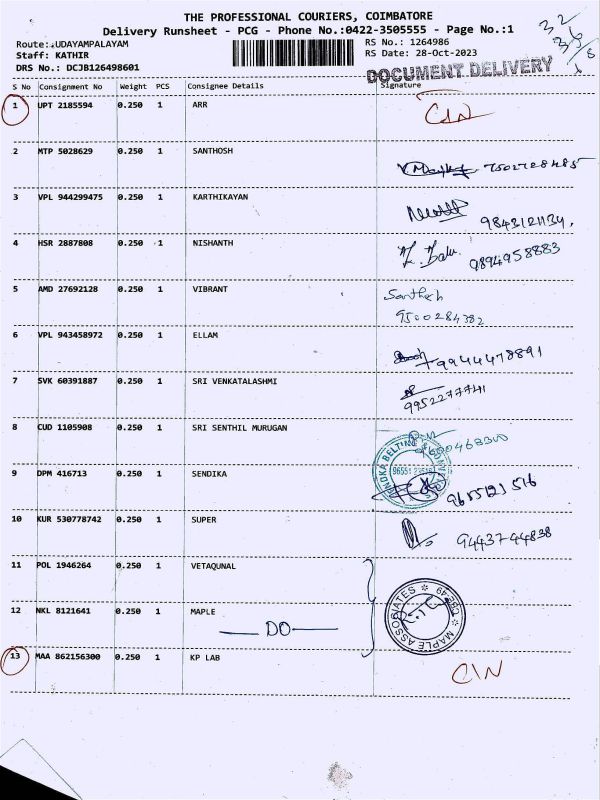 THE PROFESSIONAL COURIERS, COIMBATORE
Delivery Runsheet - PCG - Phone No.:0422-3505555 - Page No.:1
Route: UDAYAMPALAYAM
Staff: KATHIR
DRS No.: DCJB126498601
RS No.: 1264986
RS Date: 28-Oct-2023
32
DOCUMENT DELIVERY
S No Consignment No Weight PCS Consignee Details Signature
1 UPT 2185594 0.250 1 ARR CIN
2 MTP 5028629 0.250 1 SANTHOSH 7502728485
3 VPL 944299475 0.250 1 KARTHIKAYAN 9843121134.
4 HSR 2887808 0.250 1 NISHANTH 9894958883
5 AMD 27692128 0.250 1 VIBRANT Santhosh
9500284382
6 VPL 943458972 0.250 1 ELLAM 9944478891
7 SVK 60391887 0.250 1 SRI VENKATALASHMI 9952277741
8 CUD 1105908 0.250 1 SRI SENTHIL MURUGAN
9 DPM 416713 0.250 1 SENDIKA 9655123516
10 KUR 530778742 0.250 1 SUPER 9443744838
11 POL 1946264 0.250 1 VETAQUNAL
12 NKL 8121641 0.250 1 MAPLE
DO
MAPLE ASSOCIATES
13 MAA 862156300 0.250 1 KP LAB CIN